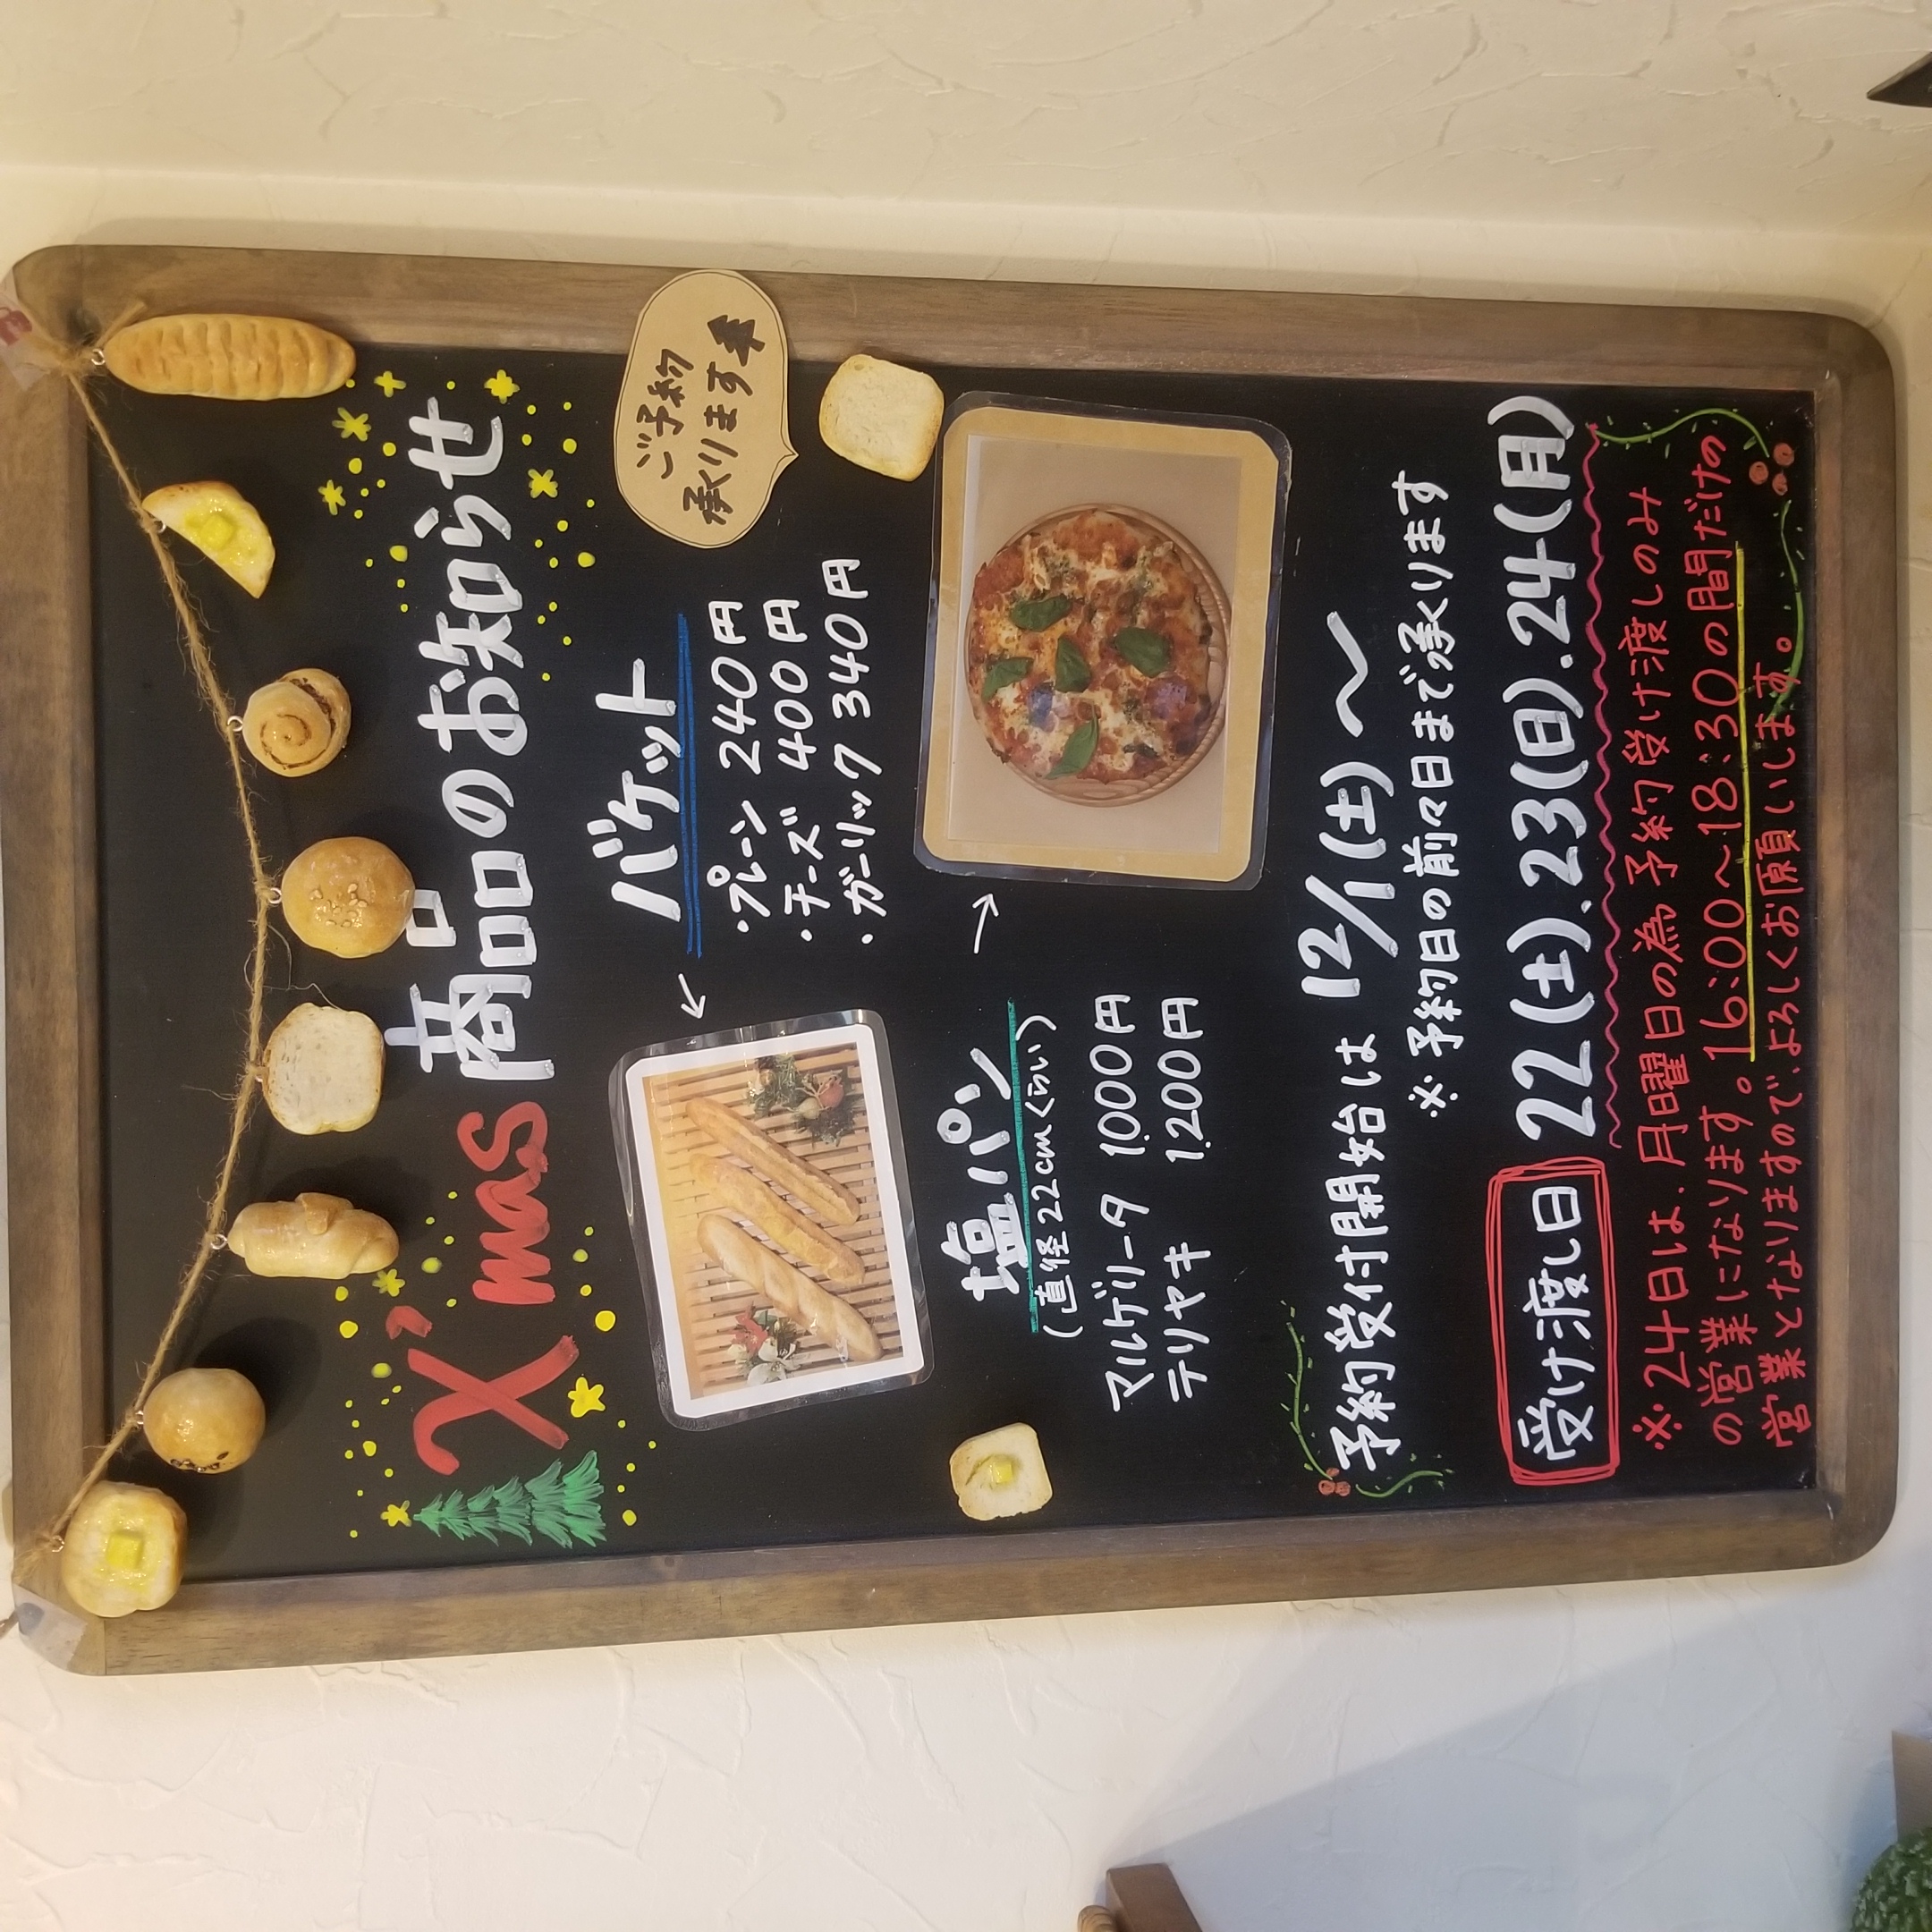 X'mas 商品のお知らせ
バゲット
ご予約
承ります
・プレーン 240円
・チーズ 400円
・ガーリック 340円
塩パン
(直径22cmくらい)
マルゲリータ 1,000円
テリヤキ 1,200円
予約受付開始は 12/1(土)〜
※予約日の前々日まで承ります
受け渡し日 22(土).23(日).24(月)
※24日は、月曜日の為 予約受け渡しのみ
の営業になります。16:00〜18:30の間だけの
営業となりますので、よろしくお願いします。